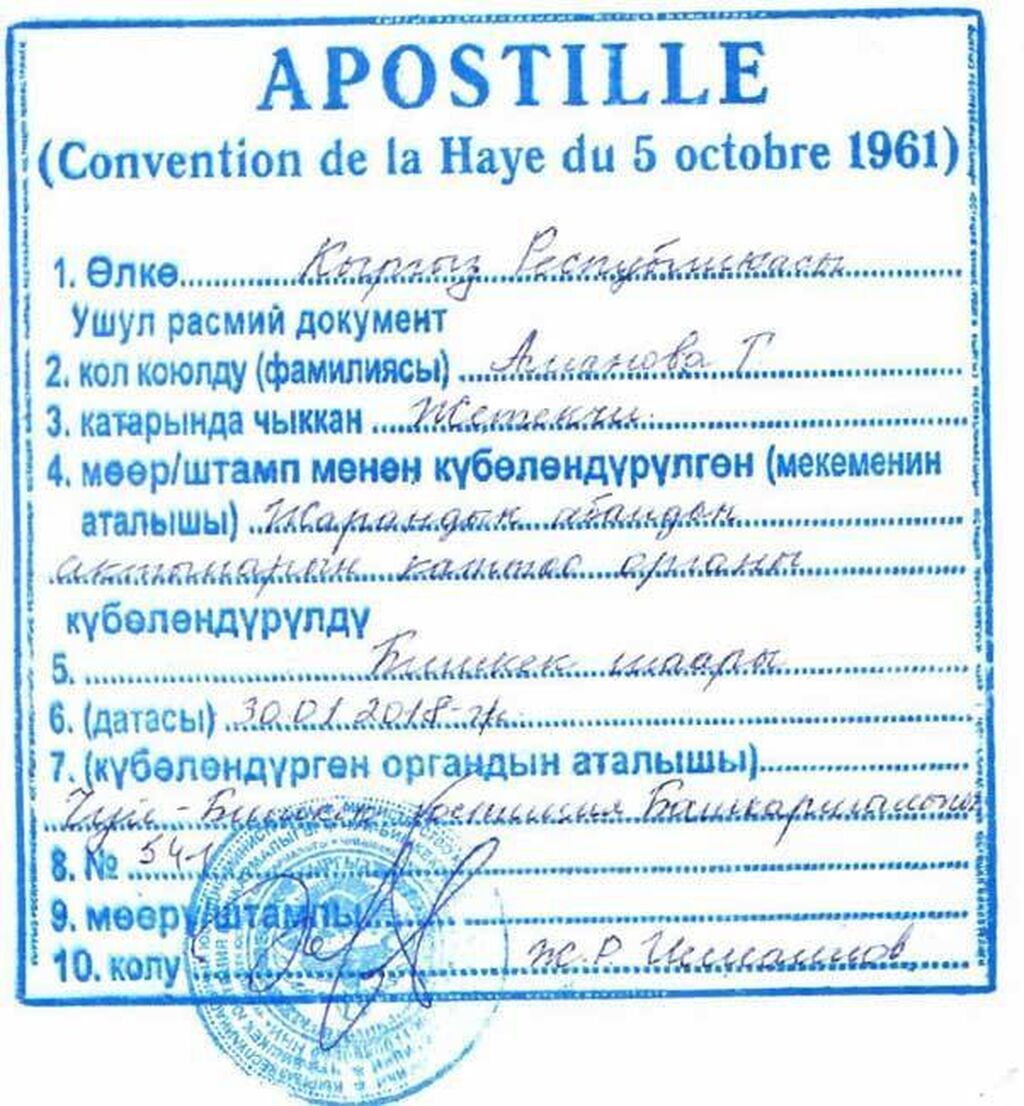 APOSTILLE
(Convention de la Haye du 5 octobre 1961)
1. Өлкө Кыргыз Республикасы
Ушул расмий документ
2. кол коюлду (фамилиясы) Аманова Г
3. катарында чыккан Жетекчи
4. мөөр/штамп менен күбөлөндүрүлгөн (мекеменин
аталышы) Жарандык абалдын
актыларын каттоо органы
күбөлөндүрүлдү
5. Бишкек шаары
6. (датасы) 30.01.2018-ж.
7. (күбөлөндүргөн органдын аталышы)
Чүй-Бишкек юстиция Башкармалыгы
8. № 541
9. мөөрү/штампы
10. колу Ж.Р. Исмаилов